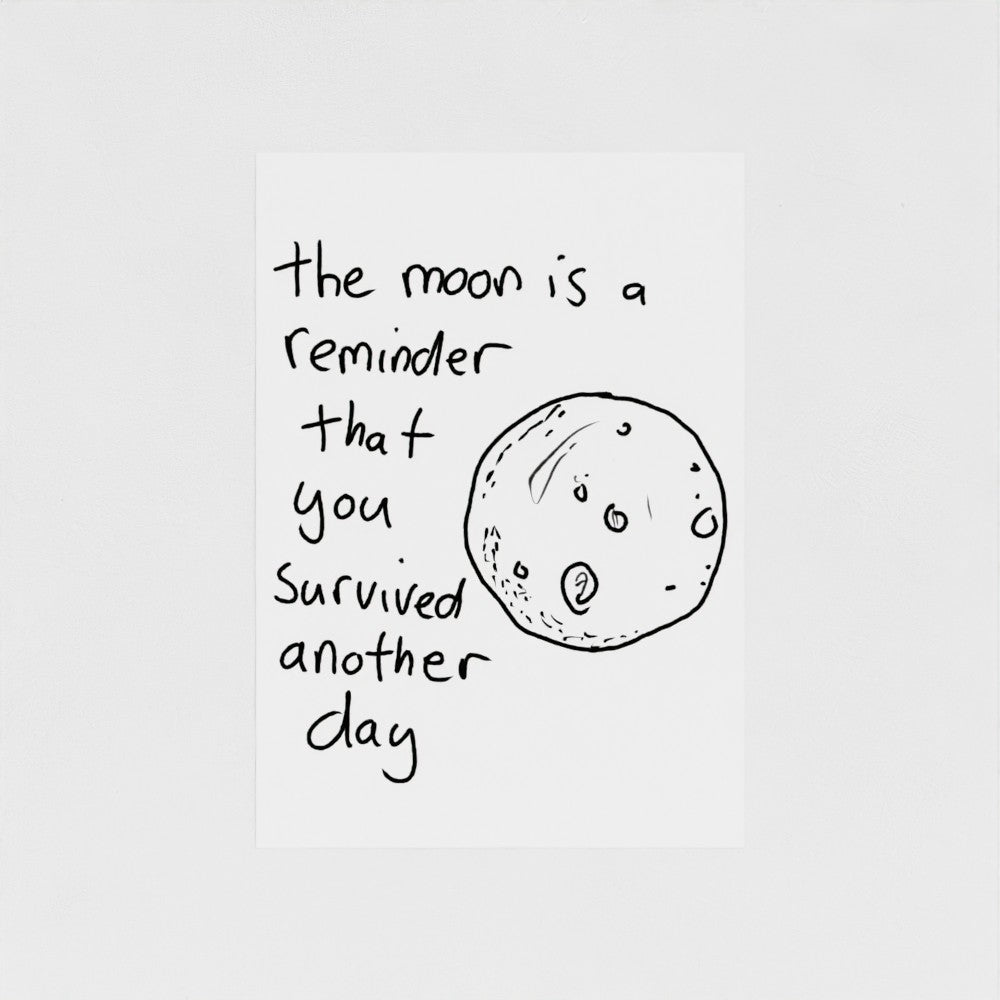 the moon is a
reminder
that
you
survived
another
day